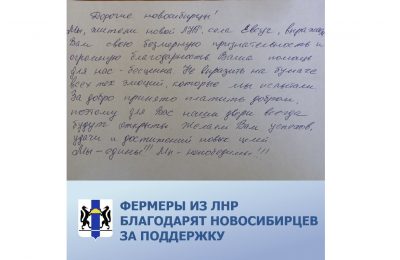 Дорогие новосибирцы!
Мы, жители новой ЛНР, села Евсуг, выражаем
Вам свою безмерную признательность и
огромную благодарность. Ваша помощь
для нас - бесценна. Не выразить на бумаге
всех тех эмоций, которые мы испытали.
За добро принято платить добром,
поэтому для Вас наши двери всегда
будут открыты. Желаем Вам успехов,
удачи и достижений новых целей.
Мы - едины!!! Мы - непобедимы!!!
ФЕРМЕРЫ ИЗ ЛНР
БЛАГОДАРЯТ НОВОСИБИРЦЕВ
ЗА ПОДДЕРЖКУ